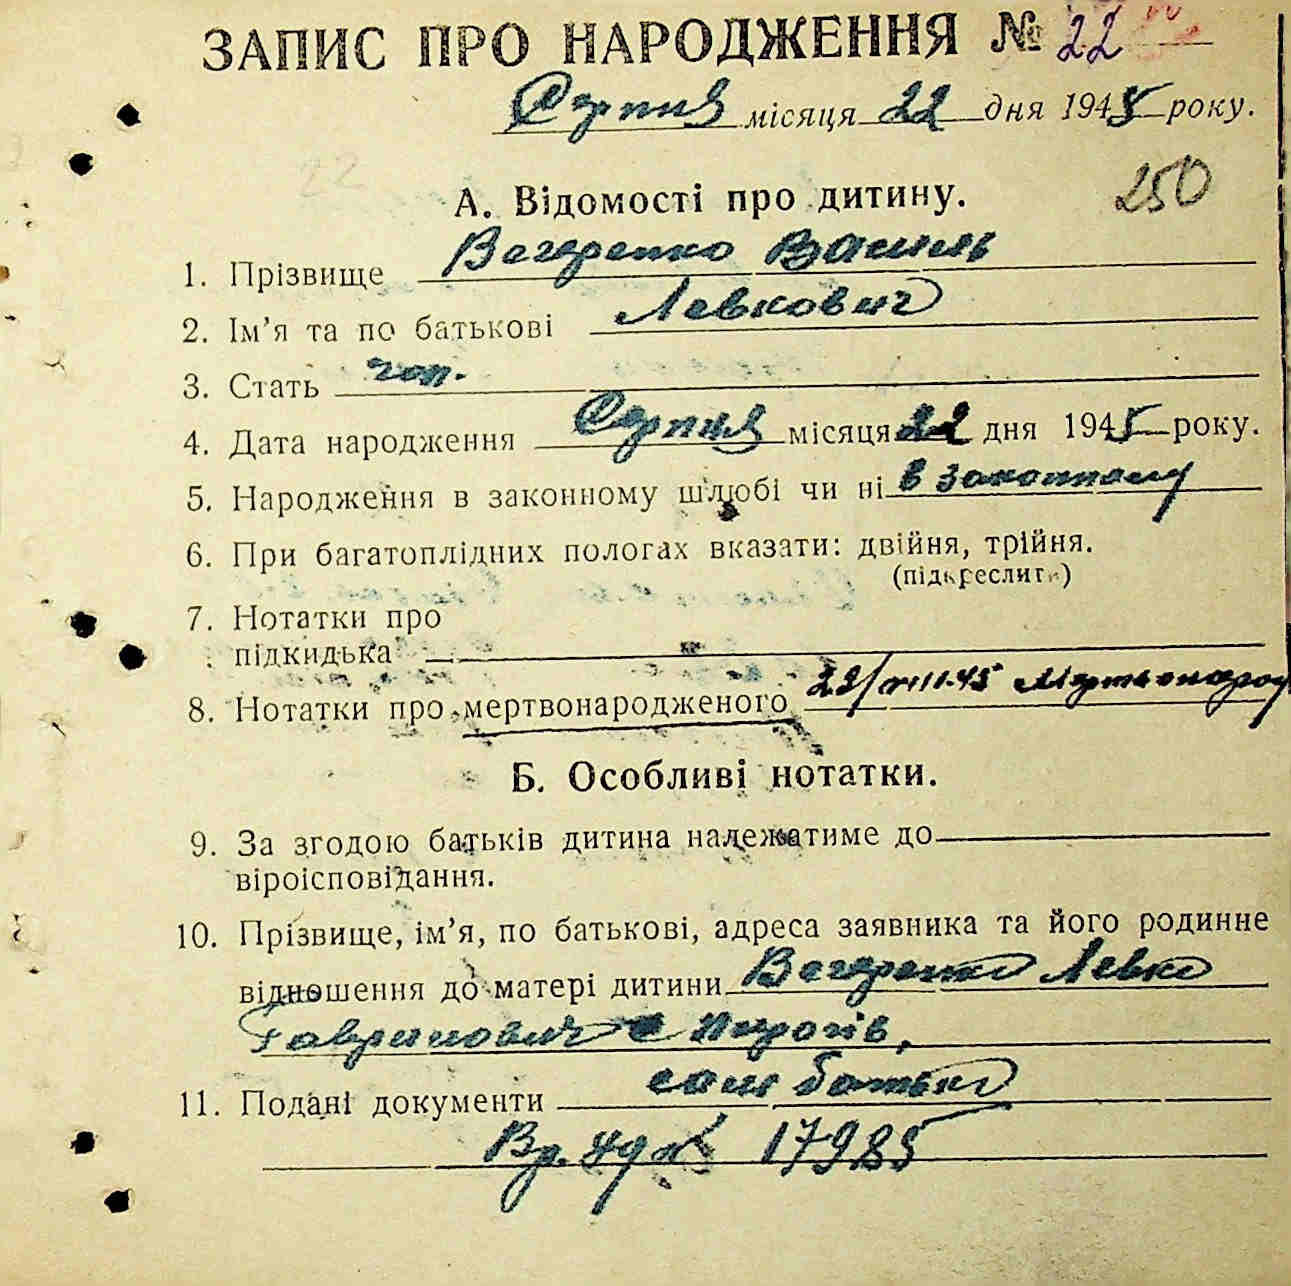 ЗАПИС ПРО НАРОДЖЕННЯ № 22
Серпня місяця 22 дня 1945 року.
250
А. Відомості про дитину.
1. Прізвище Вегеренко Василь
2. Ім'я та по батькові Левкович
3. Стать чол.
4. Дата народження Серпня місяця 22 дня 1945 року.
5. Народження в законному шлюбі чи ні в законному
6. При багатоплідних пологах вказати: двійня, трійня.
(підкреслити)
7. Нотатки про
підкидька
8. Нотатки про мертвонародженого 22/VIII-45 Мертвонарод
Б. Особливі нотатки.
9. За згодою батьків дитина належатиме до
віроісповідання.
10. Прізвище, ім'я, по батькові, адреса заявника та його родинне
відношення до матері дитини Вегеренко Левко
Гаврилович с Пирогів,
сам батько
11. Подані документи
17985